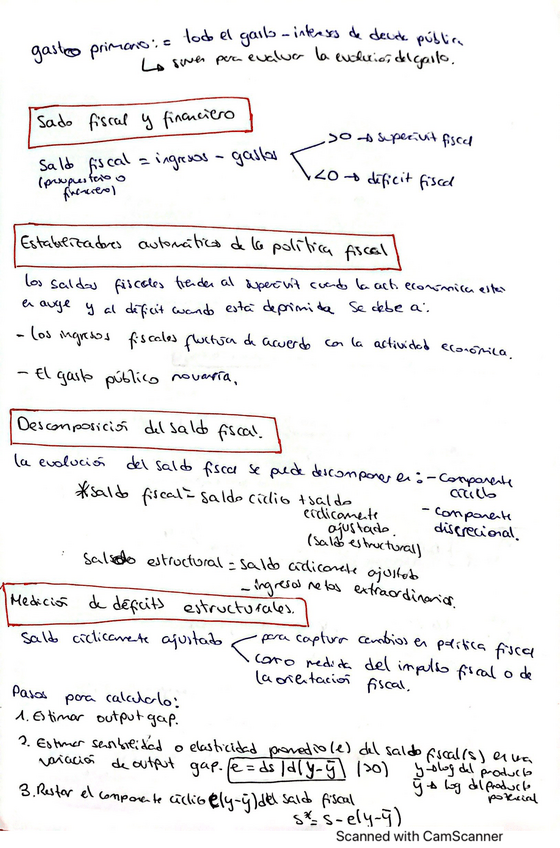 gasto primario: = todo el gasto - intereses de deuda pública
↳ sirven para evaluar la evolución del gasto.
Sado fiscal y financiero
>0 → superávit fiscal
Saldo fiscal = ingresos - gastos
(presupuestario o financiero)
<0 → déficit fiscal
Estabilizadores automáticos de la política fiscal
los saldos fiscales tienden al superávit cuando la act. económica esta
en auge y al déficit cuando está deprimida. Se debe a:
- Los ingresos fiscales fluctúan de acuerdo con la actividad económica.
- El gasto público no varía.
Descomposición del saldo fiscal.
la evolución del saldo fiscal se puede descomponer en: - componente
cíclico
*saldo fiscal = saldo cíclico + saldo
cíclicamente
- componente
ajustado
discrecional.
(saldo estructural)
Saldo estructural = saldo cíclicamente ajustado
- ingresos netos extraordinarios.
Medición de déficits estructurales.
Saldo cíclicamente ajustado
para capturar cambios en política fiscal
como medida del impulso fiscal o de
la orientación fiscal.
Pasos para calcularlo:
1. Estimar output gap.
2. Estimar sensibilidad o elasticidad promedio (e) del saldo fiscal (s) en una
variación de output gap. e = ds/d(y-ȳ) (>0)
y → log del producto
ȳ → log del producto
potencial
3. Restar el componente cíclico e(y-ȳ) del saldo fiscal
s* = s - e(y-ȳ)
Scanned with CamScanner